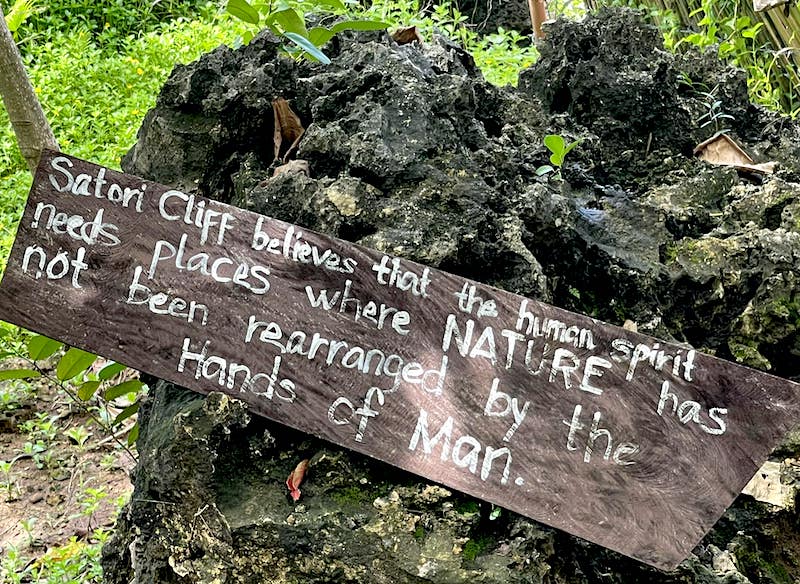 Satori Cliff believes that the human spirit
needs places where NATURE has
not been rearranged by the
Hands of Man.